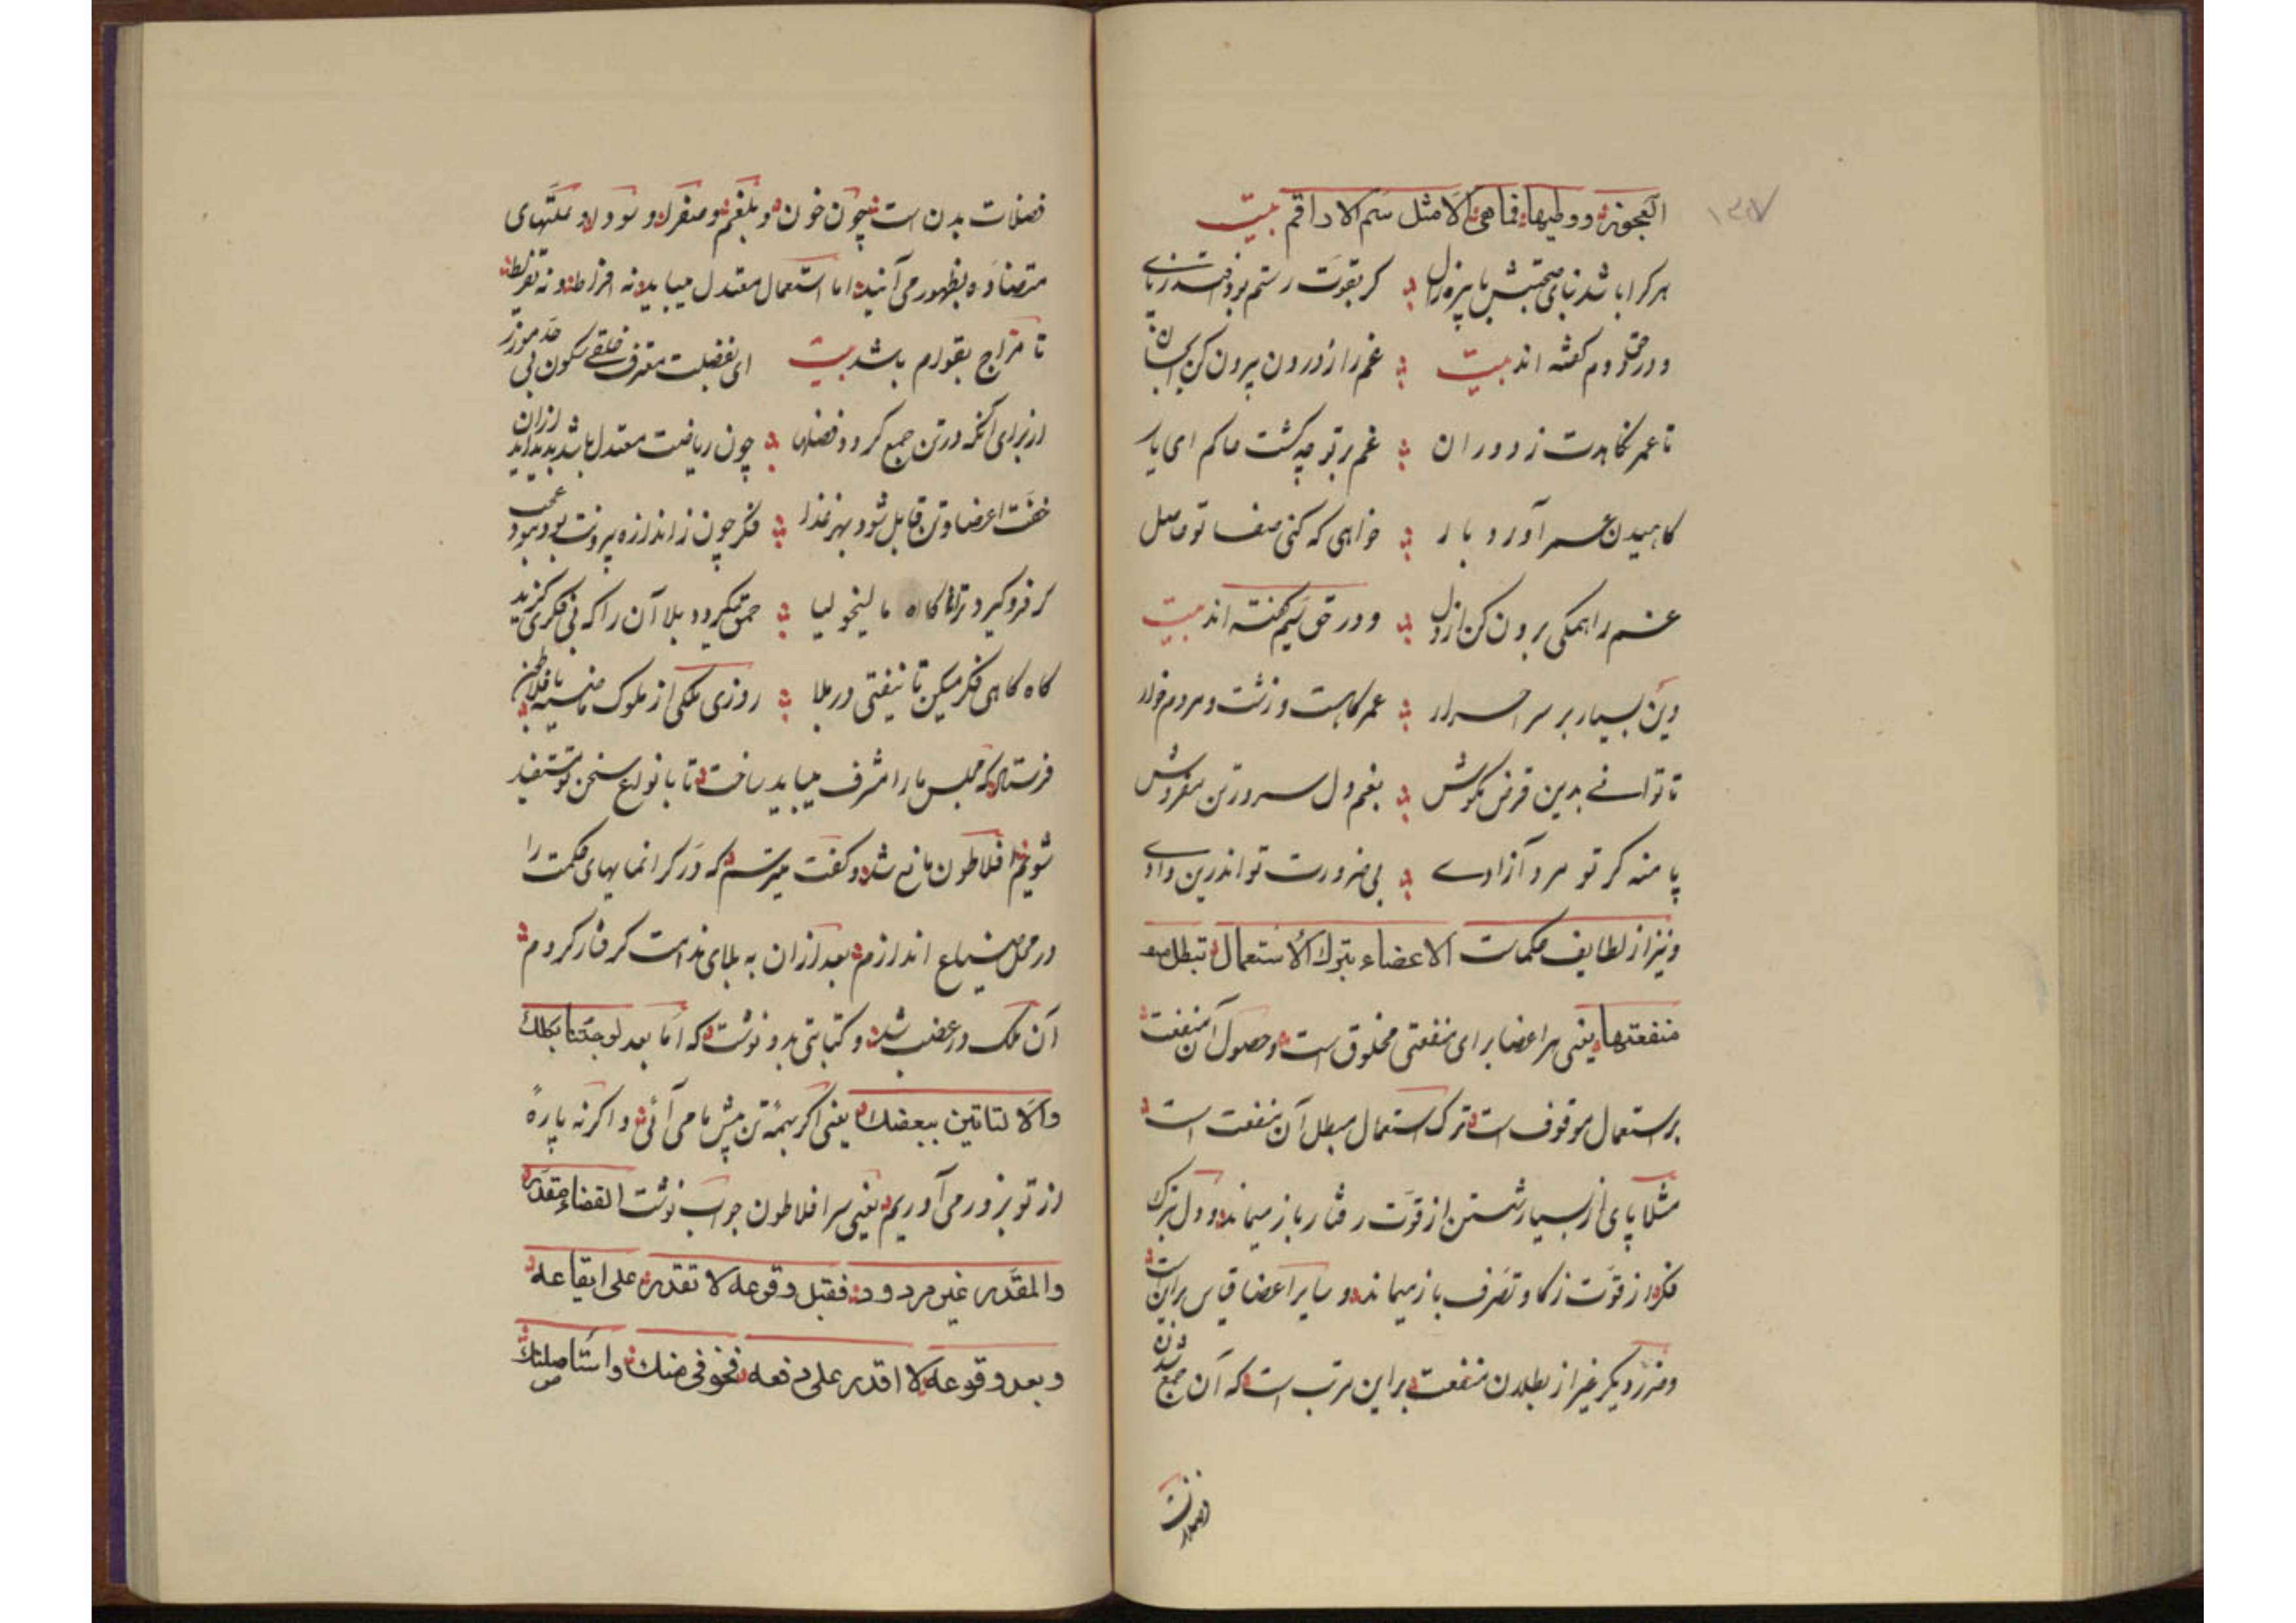 ۱۳۷
العجوزة ووطیها فما هی الا مثل سم الاراقم بیت
هر کرا باشد بنای صحبتش با پیره زال کر بقوت رستم بود افتد ز پای
و در حق دوم کفته اند بیت غم را ز درون برون کن ای جان
تا عمر نکاهدت ز دوران غم بر تو چو کشت حاکم ای یار
کاهیدن عمر آورد بار خواهی که کنی صفا تو حاصل
غم را همکی برون کن از دل و در حق سیم کفته اند بیت
دین بسیار بر سر احرار عمر کاهست و زشت و مردم خوار
تا توانی بدین قرض مکوش بغم دل سرور تن مفروش
پا منه کر تو مرد آزادی بی ضرورت تو اندرین وادی
و نیز از لطایف حکمات الاعضاء بترك الاستعمال تبطل
منفعتها یعنی هر اعضا برای منفعتی مخلوق است و حصول آن منفعت
بر استعمال موقوف است و ترک استعمال مبطل آن منفعت است
مثلا پای از بسیار نشستن از قوّت رفتار باز میماند و دل بترک
فکر از قوّت زکا و تصرف باز میماند و سایر اعضا قیاس بر این است
و ضرر دیکر غیر از بطلان منفعت بر این مرتب است که آن جمع شدن
فضلات
فضلات بدن است چون خون و بلغم و صفرا و سودا و علتهای
متضادّه بظهور می آیند اما استعمال معتدل میباید نه افراط و نه تفریط
تا مزاج بقوام باشد بیت ای بفضلت معترف خلقی سکون بی حد مورز
از برای آنکه در تن جمع کردد فضلها چون ریاضت معتدل باشد پدید آید ازان
خفّت اعضا و تن قابل شود بهر غذا فکر چون ز اندازه بیرونت بود نبود عجب
کر فرو کیرد ترا ناکاه مالیخولیا حمق میکردد بلا آن را که بی فکری کزید
کاه کاهی فکر میکن تا نیفتی در بلا روزی ملکی از ملوک ماضیه بافلاطون
فرستاد که مجلس ما را مشرف میباید ساخت تا بانواع سخن تو مستفید
شویم افلاطون مانع شد و کفت میترسم که دُر کرانمایهای حکمت را
در محل ضیاع اندازم بعد ازان به بلای ندامت کرفتار کردم
آن ملک در غضب شد و کتابتی بدو نوشت که اما بعد لو جئتنا بكلك
والّا لتاتین ببعضك یعنی اکر بهمهٔ تن پیش ما می آئی و اکرنه پارهٔ
از تو بزور می آوریم یعنی سر افلاطون جواب نوشت القضاء مقدر
والمقدر غیر مردود فقبل وقوعه لا تقدر علی ایقاعه
وبعد وقوعه لا اقدر علی دفعه فتخوفی منك واستاصلتك